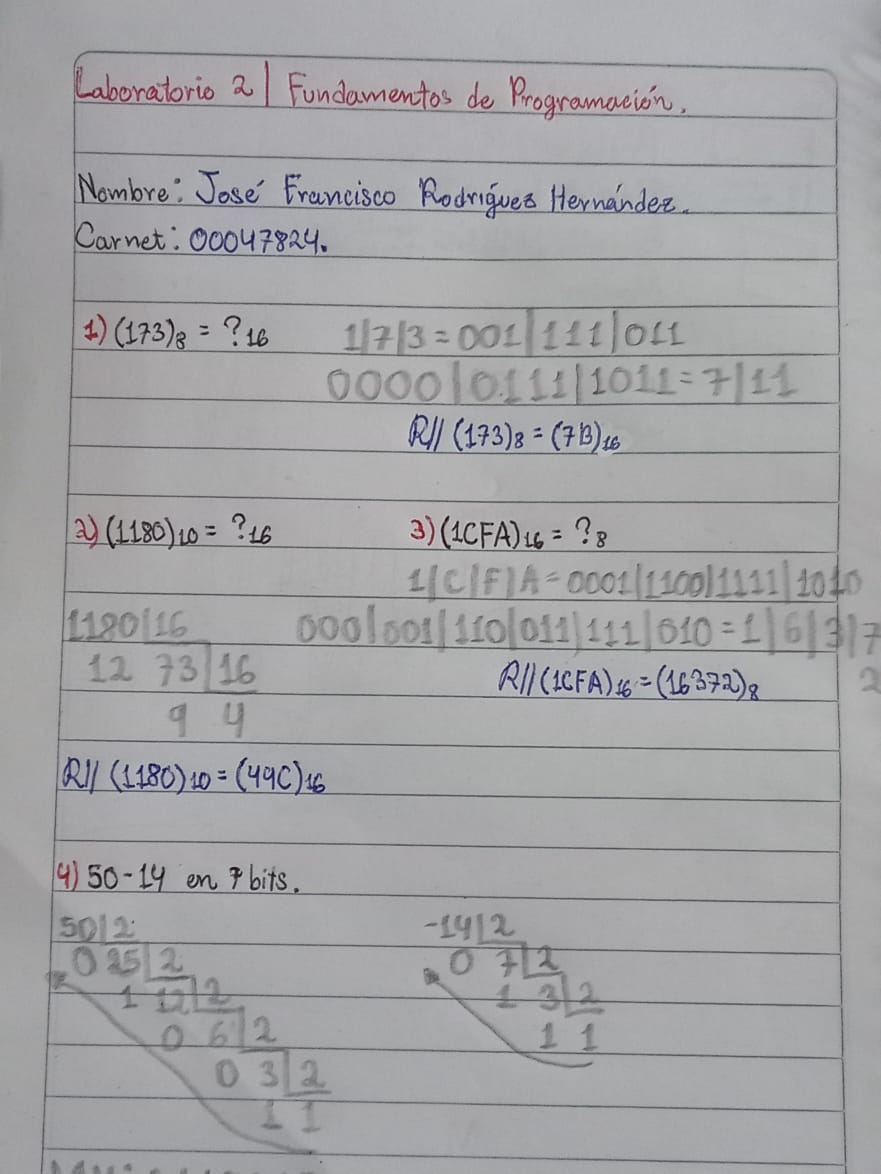 Laboratorio 2 | Fundamentos de Programación.
Nombre: José Francisco Rodríguez Hernández.
Carnet: 00047824.
1) (173)8 = ?16
1|7|3 = 001|111|011
0000|0111|1011 = 7|11
R// (173)8 = (7B)16
2) (1180)10 = ?16
3) (1CFA)16 = ?8
1|C|F|A = 0001|1100|1111|1010
000|001|110|011|111|010 = 1|6|3|7
2
R// (1CFA)16 = (16372)8
1180|16
12 73|16
9 4
R// (1180)10 = (49C)16
4) 50-14 en 7 bits.
50|2
0 25|2
1 12|2
0 6|2
0 3|2
1 1
-14|2
0 7|2
1 3|2
1 1